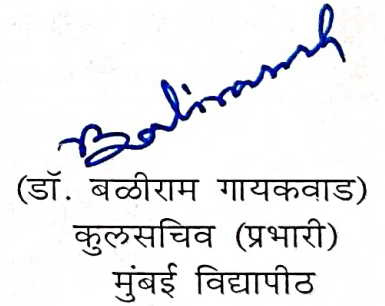 Baliram
(डॉ. बळीराम गायकवाड)
कुलसचिव (प्रभारी)
मुंबई विद्यापीठ